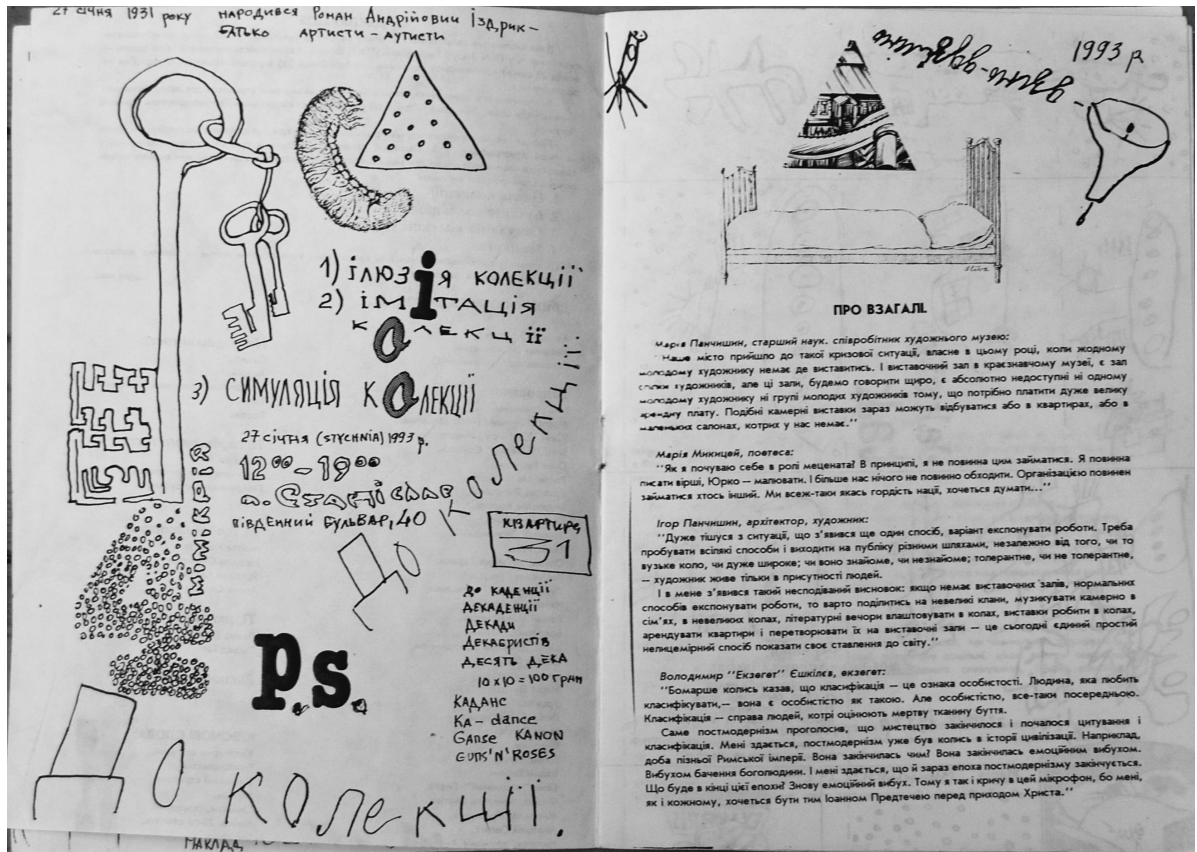 27 січня 1931 року народився Роман Андрійович Іздрик –
батько артисти – аутисти
1) ілюзія колекції
2) імітація
колекції
3) симуляція колекції
27 січня (stychnia) 1993 р.
12 00 – 19 00
м. Станіслав
південний бульвар, 40
мімікрія
До колекції
квартира
31
до каденції
декаденції
декади
декабристів
десять дека
10 х 10 = 100 грам
каданс
ка – dance
Ganse канон
GUNS'N'ROSES
p.s.
До колекції.
наклад
1993 р
ПРО ВЗАГАЛІ.
Марія Панчишин, старший наук. співробітник художнього музею:
"Наше місто прийшло до такої кризової ситуації, власне в цьому році, коли жодному
молодому художнику немає де виставитись. І виставочний зал в краєзнавчому музеї, є зал
спілки художників, але ці зали, будемо говорити щиро, є абсолютно недоступні ні одному
молодому художнику ні групі молодих художників тому, що потрібно платити дуже велику
орендну плату. Подібні камерні виставки зараз можуть відбуватися або в квартирах, або в
маленьких салонах, котрих у нас немає."
Марія Микицей, поетеса:
"Як я почуваю себе в ролі мецената? В принципі, я не повинна цим займатися. Я повинна
писати вірші, Юрко — малювати. І більше нас нічого не повинно обходити. Організацією повинен
займатися хтось інший. Ми всеж-таки якась гордість нації, хочеться думати..."
Ігор Панчишин, архітектор, художник:
"Дуже тішуся з ситуації, що з'явився ще один спосіб, варіант експонувати роботи. Треба
пробувати всілякі способи і виходити на публіку різними шляхами, незалежно від того, чи то
вузьке коло, чи дуже широке; чи воно знайоме, чи незнайоме; толерантне, чи не толерантне,
— художник живе тільки в присутності людей.
І в мене з'явився такий несподіваний висновок: якщо немає виставочних залів, нормальних
способів експонувати роботи, то варто поділитись на невеликі клани, музикувати камерно в
сім'ях, в невеликих колах, літературні вечори влаштовувати в колах, виставки робити в колах,
арендувати квартири і перетворювати їх на виставочні зали — це сьогодні єдиний простий
нелицемірний спосіб показати своє ставлення до світу."
Володимир "Екзегет" Єшкілєв, екзегет:
"Бомарше колись казав, що класифікація — це ознака особистості. Людина, яка любить
класифікувати,— вона є особистістю як такою. Але особистістю, все-таки посередньою.
Класифікація — справа людей, котрі оцінюють мертву тканину буття.
Саме постмодернізм проголосив, що мистецтво закінчилося і почалося цитування і
класифікація. Мені здається, постмодернізм уже був колись в історії цивілізації. Наприклад,
доба пізньої Римської імперії. Вона закінчилась чим? Вона закінчилась емоційним вибухом.
Вибухом бачення боголюдини. І мені здається, що й зараз епоха постмодернізму закінчується.
Що буде в кінці цієї епохи? Знову емоційний вибух. Тому я так і кричу в цей мікрофон, бо мені,
як і кожному, хочеться бути тим Іоанном Предтечею перед приходом Христа."